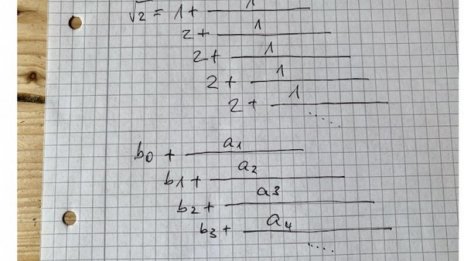 √2 = 1 + 1
2 + 1
2 + 1
2 + 1
2 + 1
.....
b0 + a1
b1 + a2
b2 + a3
b3 + a4
....